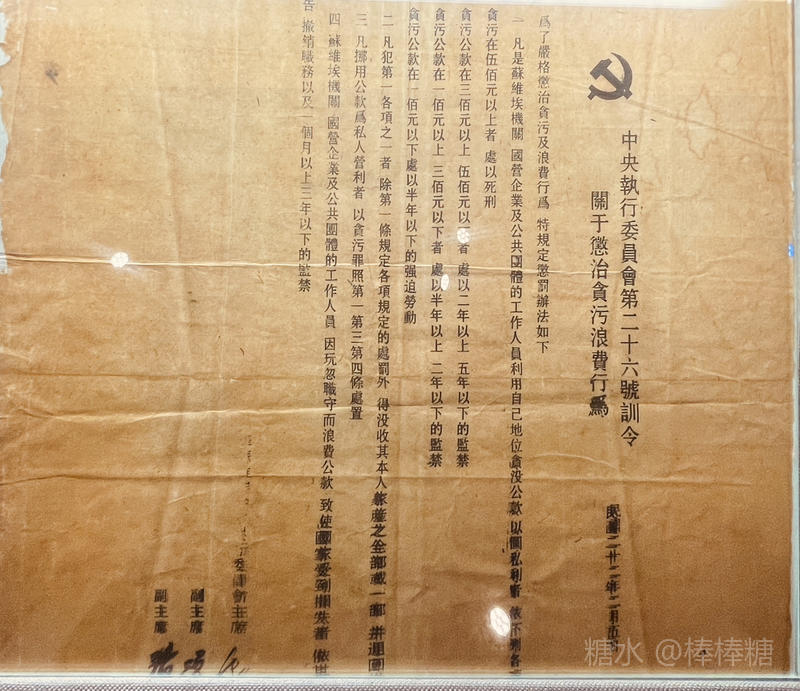 中央執行委員會第二十六號訓令
關于懲治貪污浪費行爲
爲了嚴格懲治貪污及浪費行爲 特規定懲罰辦法如下
一 凡是蘇維埃機關 國營企業及公共團體的工作人員利用自己地位貪没公款以圖私利者 依下列各
貪污在伍佰元以上者 處以死刑
貪污公款在三佰元以上 伍佰元以者 處以二年以上 五年以下的監禁
貪污公款在一佰元以上 三佰元以下者 處以半年以上 二年以下的監禁
貪污公款在一佰元以下處以半年以下的强迫勞動
二 凡犯第一各項之一者 除第一條規定各項規定的處罰外 得没收其本人家產之全部或一部 并追回
三 凡挪用公款爲私人營利者 以貪污罪照第一第三第四條處置
四 蘇維埃機關 國營企業及公共團體的工作人員 因玩忽職守而浪費公款 致使國家受到損失者 依
告 撤銷職務以及一個月以上三年以下的監禁
主席
副主席
副主席
糖水 @棒棒糖